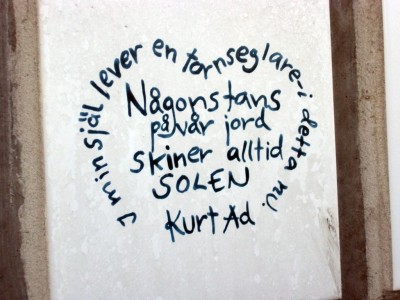 I min själ lever en tornseglare-i detta nu.
Någonstans
på vår jord
skiner alltid
SOLEN
Kurt Ad.